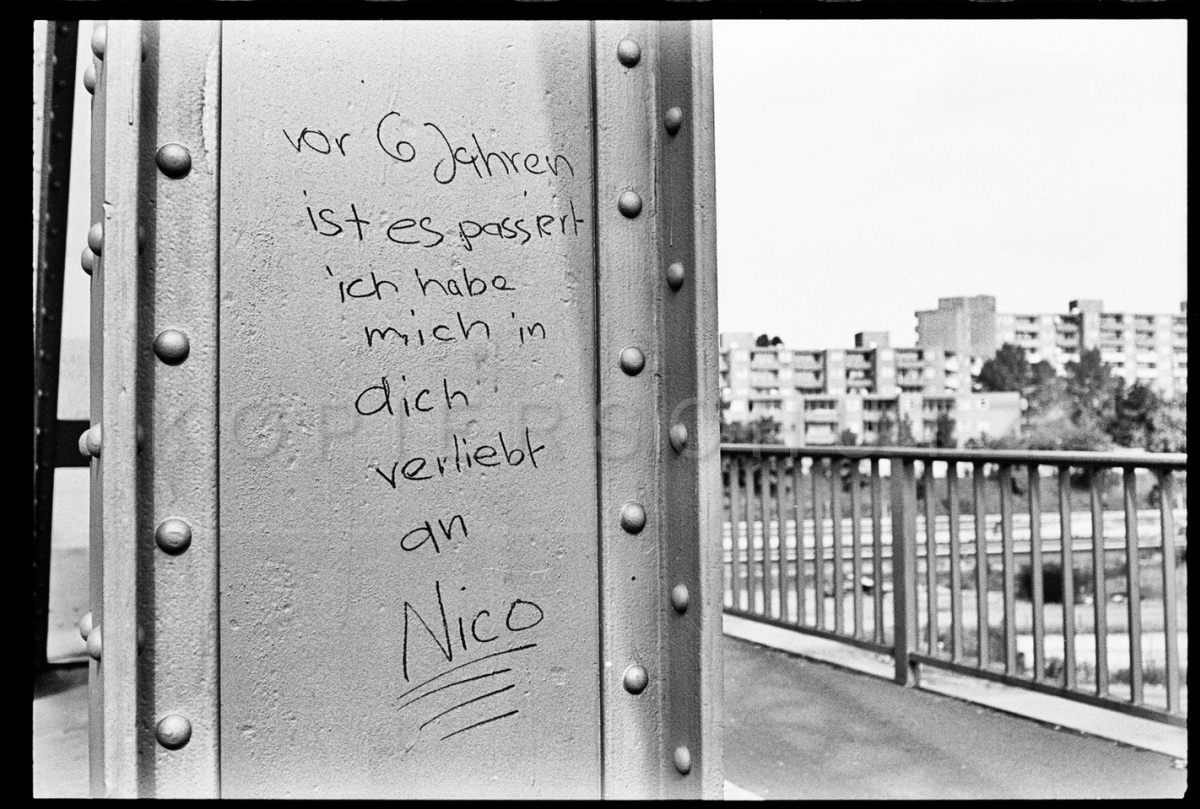 vor 6 Jahren
ist es passiert
ich habe
mich in
dich
verliebt
an
Nico